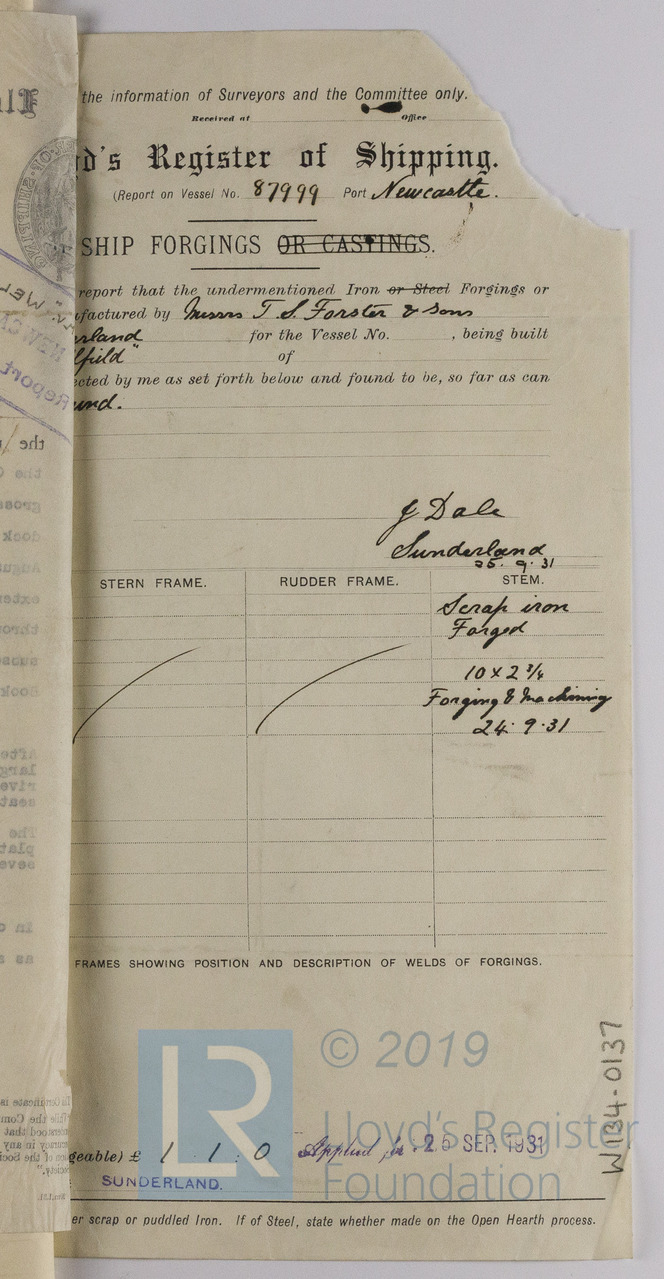 the information of Surveyors and the Committee only.
Received at Office
d's Register of Shipping.
(Report on Vessel No. 87999 Port Newcastle.
SHIP FORGINGS OR CASTINGS.
report that the undermentioned Iron or Steel Forgings or
ufactured by Messrs T. S. Forster & Sons
erland for the Vessel No. , being built
lfield" of
ected by me as set forth below and found to be, so far as can
und.
J Dale
Sunderland
25. 9. 31
STERN FRAME. RUDDER FRAME. STEM.
Scrap iron
Forged
10 x 2 3/4
Forging & Machining
24. 9. 31
FRAMES SHOWING POSITION AND DESCRIPTION OF WELDS OF FORGINGS.
© 2019
Lloyd's Register
Foundation
LR
geable) £ 1 : 1 : 0 Applied for SEP. 1931
SUNDERLAND.
er scrap or puddled Iron. If of Steel, state whether made on the Open Hearth process.
W134-0137